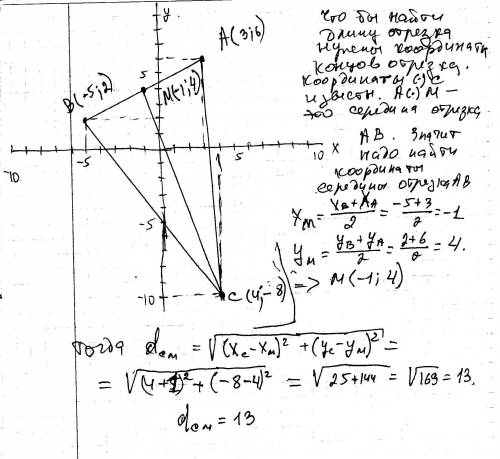 y
A(3;6)
B(-5;2)
5
M(-1;4)
-10
-5
5
10
x
-5
-10
C(4;-8)
что бы найти
длину отрезка
нужны координаты
концов отрезка.
координаты (·) C
известн. А (·) M –
это середина отрезка
AB. Значит
надо найти
координаты
середины отрезка AB
x_M = (x_B + x_A)/2 = (-5+3)/2 = -1
y_M = (y_B + y_A)/2 = (2+6)/2 = 4.
=> M(-1;4)
тогда d_CM = √((x_C - x_M)² + (y_C - y_M)²) =
= √((4+1)² + (-8-4)²) = √(25+144) = √169 = 13.
d_CM = 13